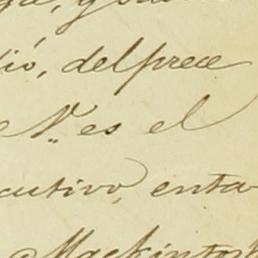 ió, del prece
e N.º es el
cutivo, enta
Mackintosh